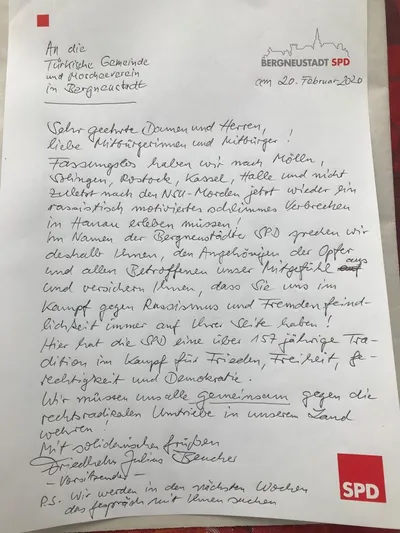 BERGNEUSTADT SPD
An die
Türkische Gemeinde
und Moscheeverein
in Bergneustadt
am 20. Februar 2020
Sehr geehrte Damen und Herren,
liebe Mitbürgerinnen und Mitbürger!
Fassungslos haben wir nach Mölln,
Solingen, Rostock, Kassel, Halle und nicht
zuletzt nach den NSU-Morden jetzt wieder ein
rassistisch motiviertes schlimmes Verbrechen
in Hanau erleben müssen!
Im Namen der Bergneustädter SPD sprechen wir
deshalb Ihnen, den Angehörigen der Opfer
und allen Betroffenen unser Mitgefühl aus
und versichern Ihnen, dass Sie uns im
Kampf gegen Rassismus und Fremdenfeind-
lichkeit immer auf Ihrer Seite haben!
Hier hat die SPD eine über 157 jährige Tra-
dition im Kampf für Frieden, Freiheit, Ge-
rechtigkeit und Demokratie.
Wir müssen uns alle gemeinsam gegen die
rechtsradikalen Umtriebe in unserem Land
wehren!
Mit solidarischen Grüßen
Friedhelm Julius Beucher
- Vorsitzender -
P.S. Wir werden in den nächsten Wochen
das Gespräch mit Ihnen suchen
SPD